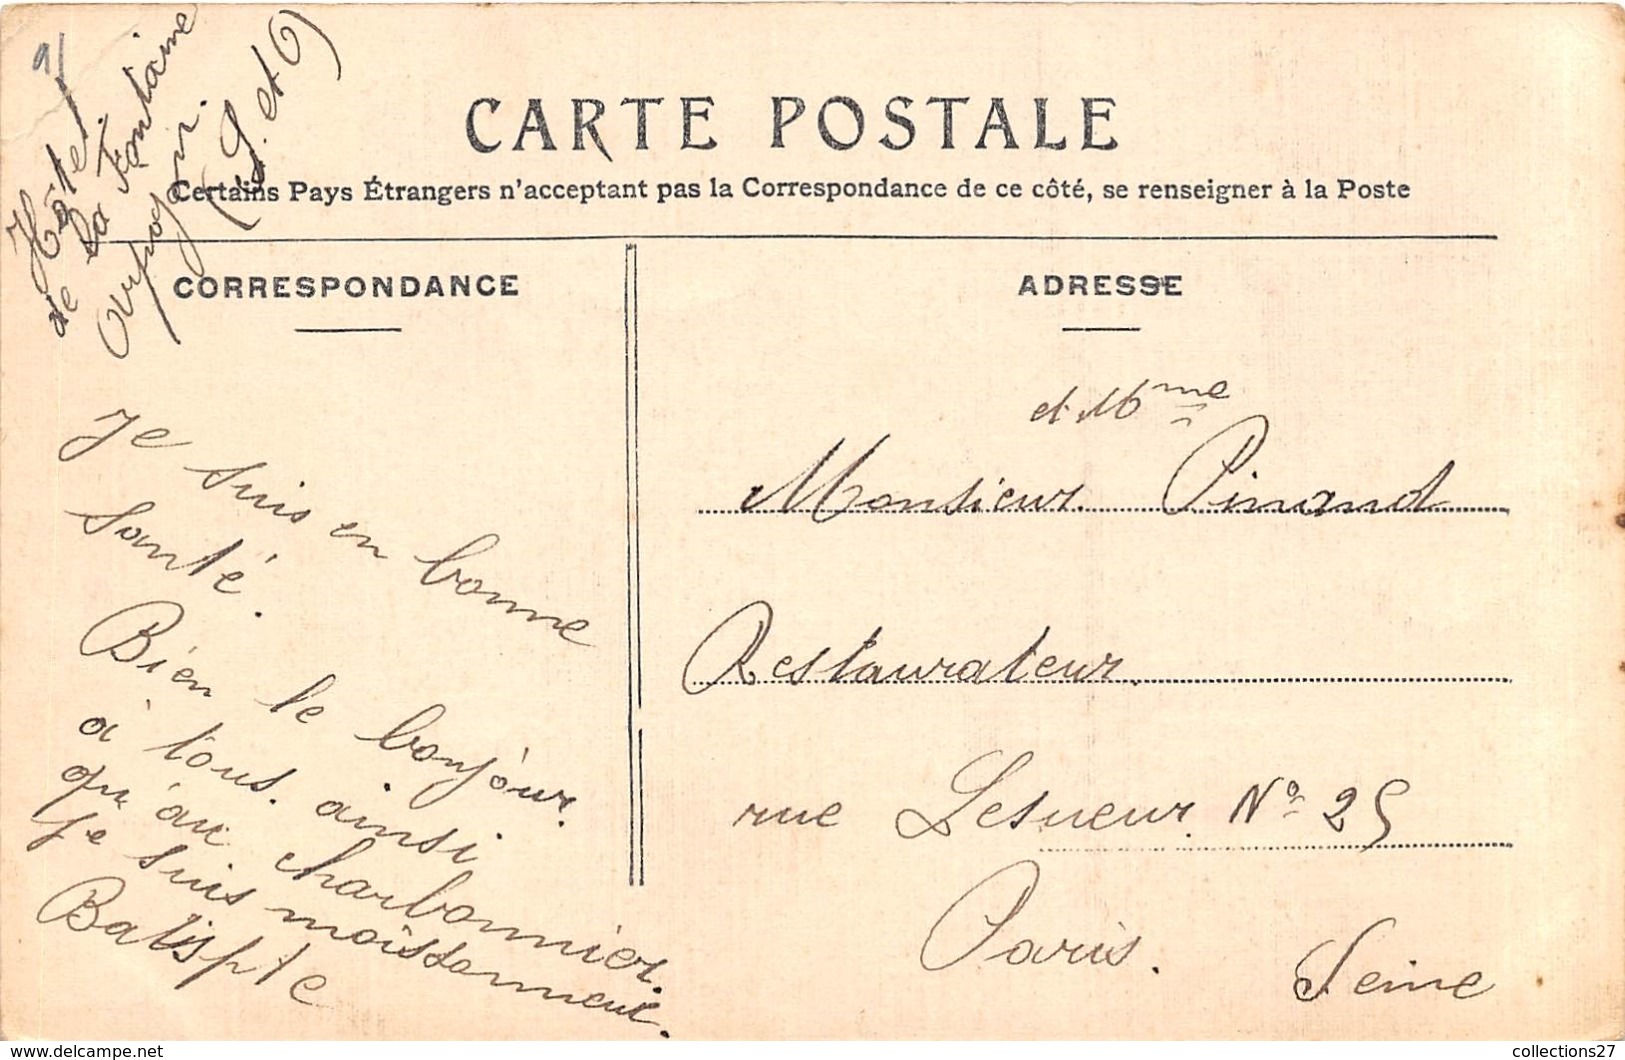 91
Hôtel
de la Fontaine
(S. et O)
CARTE POSTALE
Certains Pays Étrangers n'acceptant pas la Correspondance de ce côté, se renseigner à la Poste
CORRESPONDANCE
Je suis en bonne
Santé.
Bien le bonjour.
à tous. ainsi
qu'au charbonnier.
je suis moissonneur.
Batispte
ADRESSE
et Mme
Monsieur. Pinand
Restaurateur.
rue Lesueur. No 25
Paris.
Seine
collections27